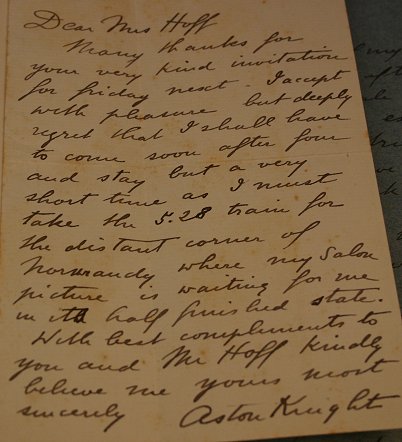 Dear Mrs Hoff
Many thanks for
your very kind invitation
for friday next. I accept
with pleasure but deeply
regret that I shall have
to come soon after four
and stay but a very
short time as I must
take the 5.28 train for
the distant corner of
Normandy where my Salon
picture is waiting for me
in its half finished state.
With best compliments to
you and Mr Hoff kindly
believe me yours most
sincerely Aston Knight